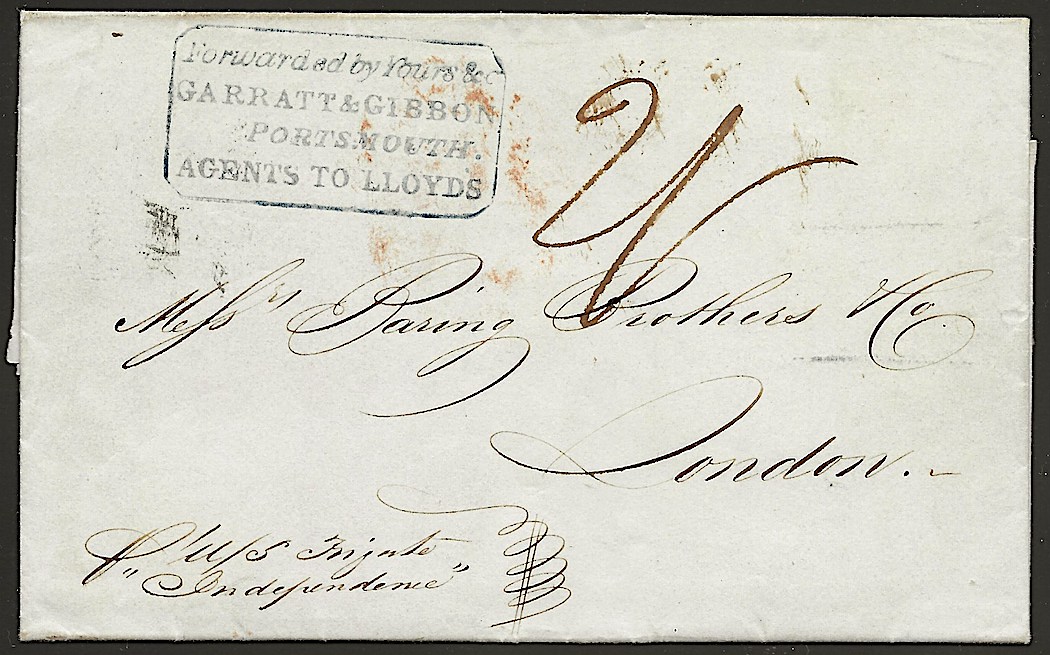 Forwarded by Yours &c
GARRATT & GIBBON
PORTSMOUTH.
AGENTS TO LLOYDS
Messrs Baring Brothers & Co
London.
P U/S Frigate
"Independence"